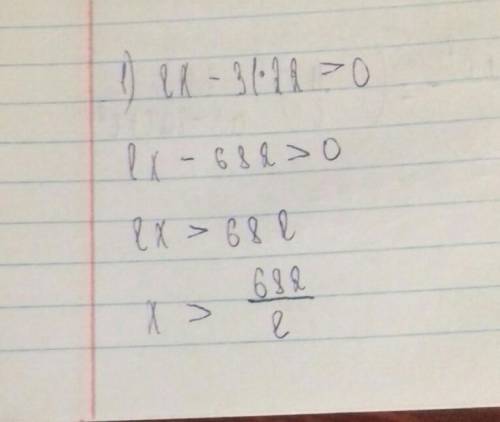 1) 2x - 31·22 > 0
2x - 682 > 0
2x > 682
x > 682/2